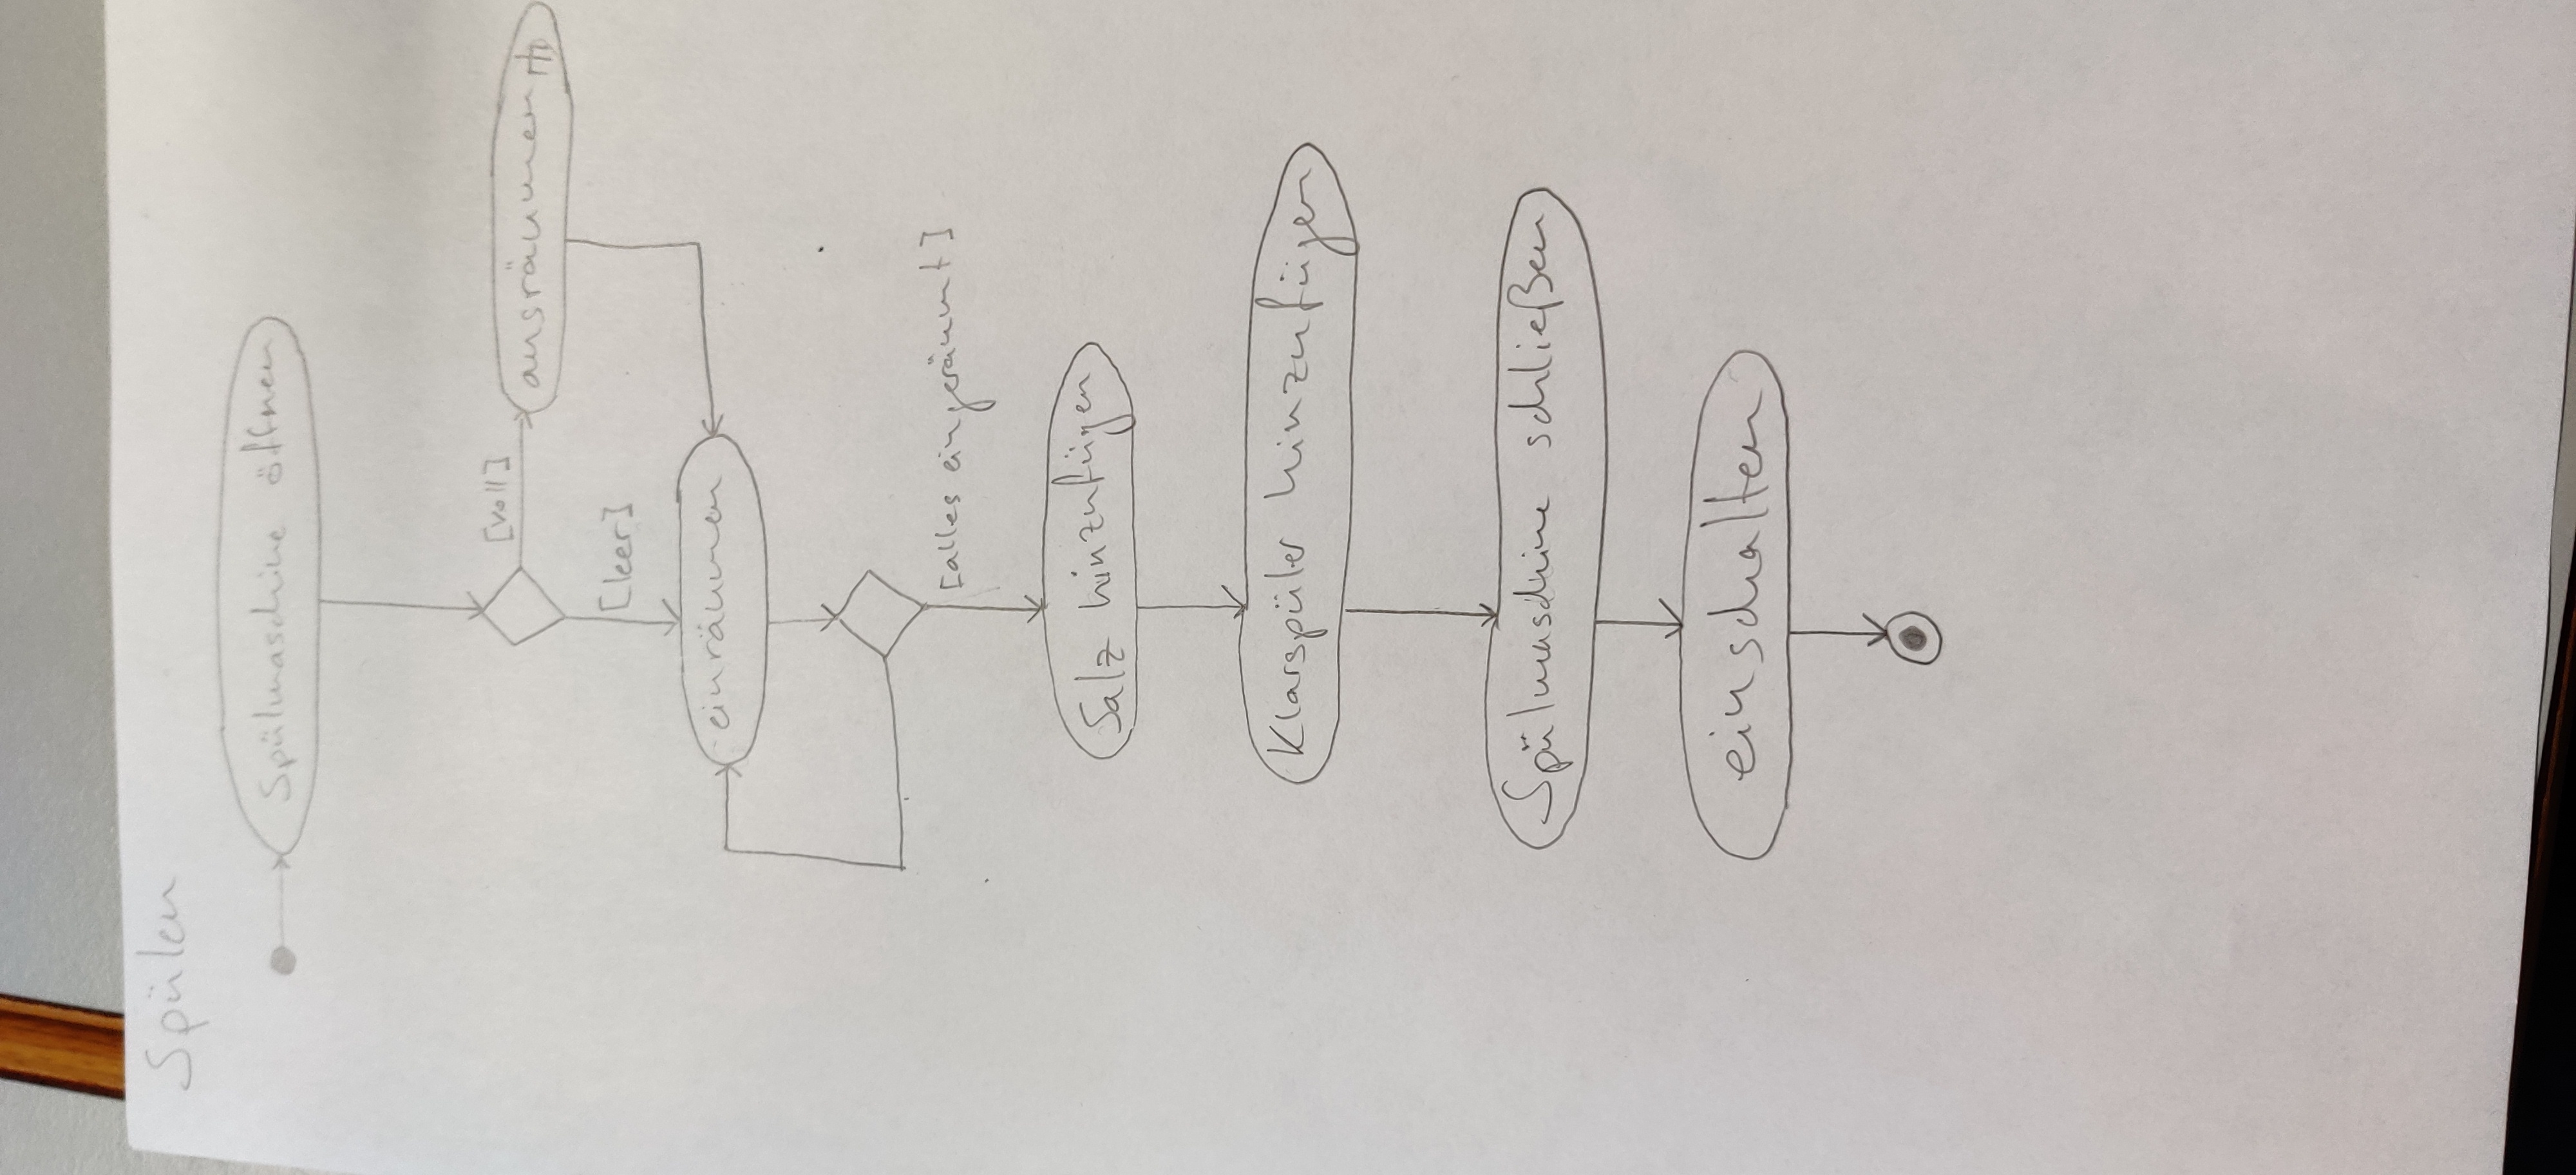 Spülen
Spülmaschine öffnen
[voll]
ausräumen
[leer]
einräumen
[alles eingeräumt]
Salz hinzufügen
Klarspüler hinzufügen
Spülmaschine schließen
einschalten